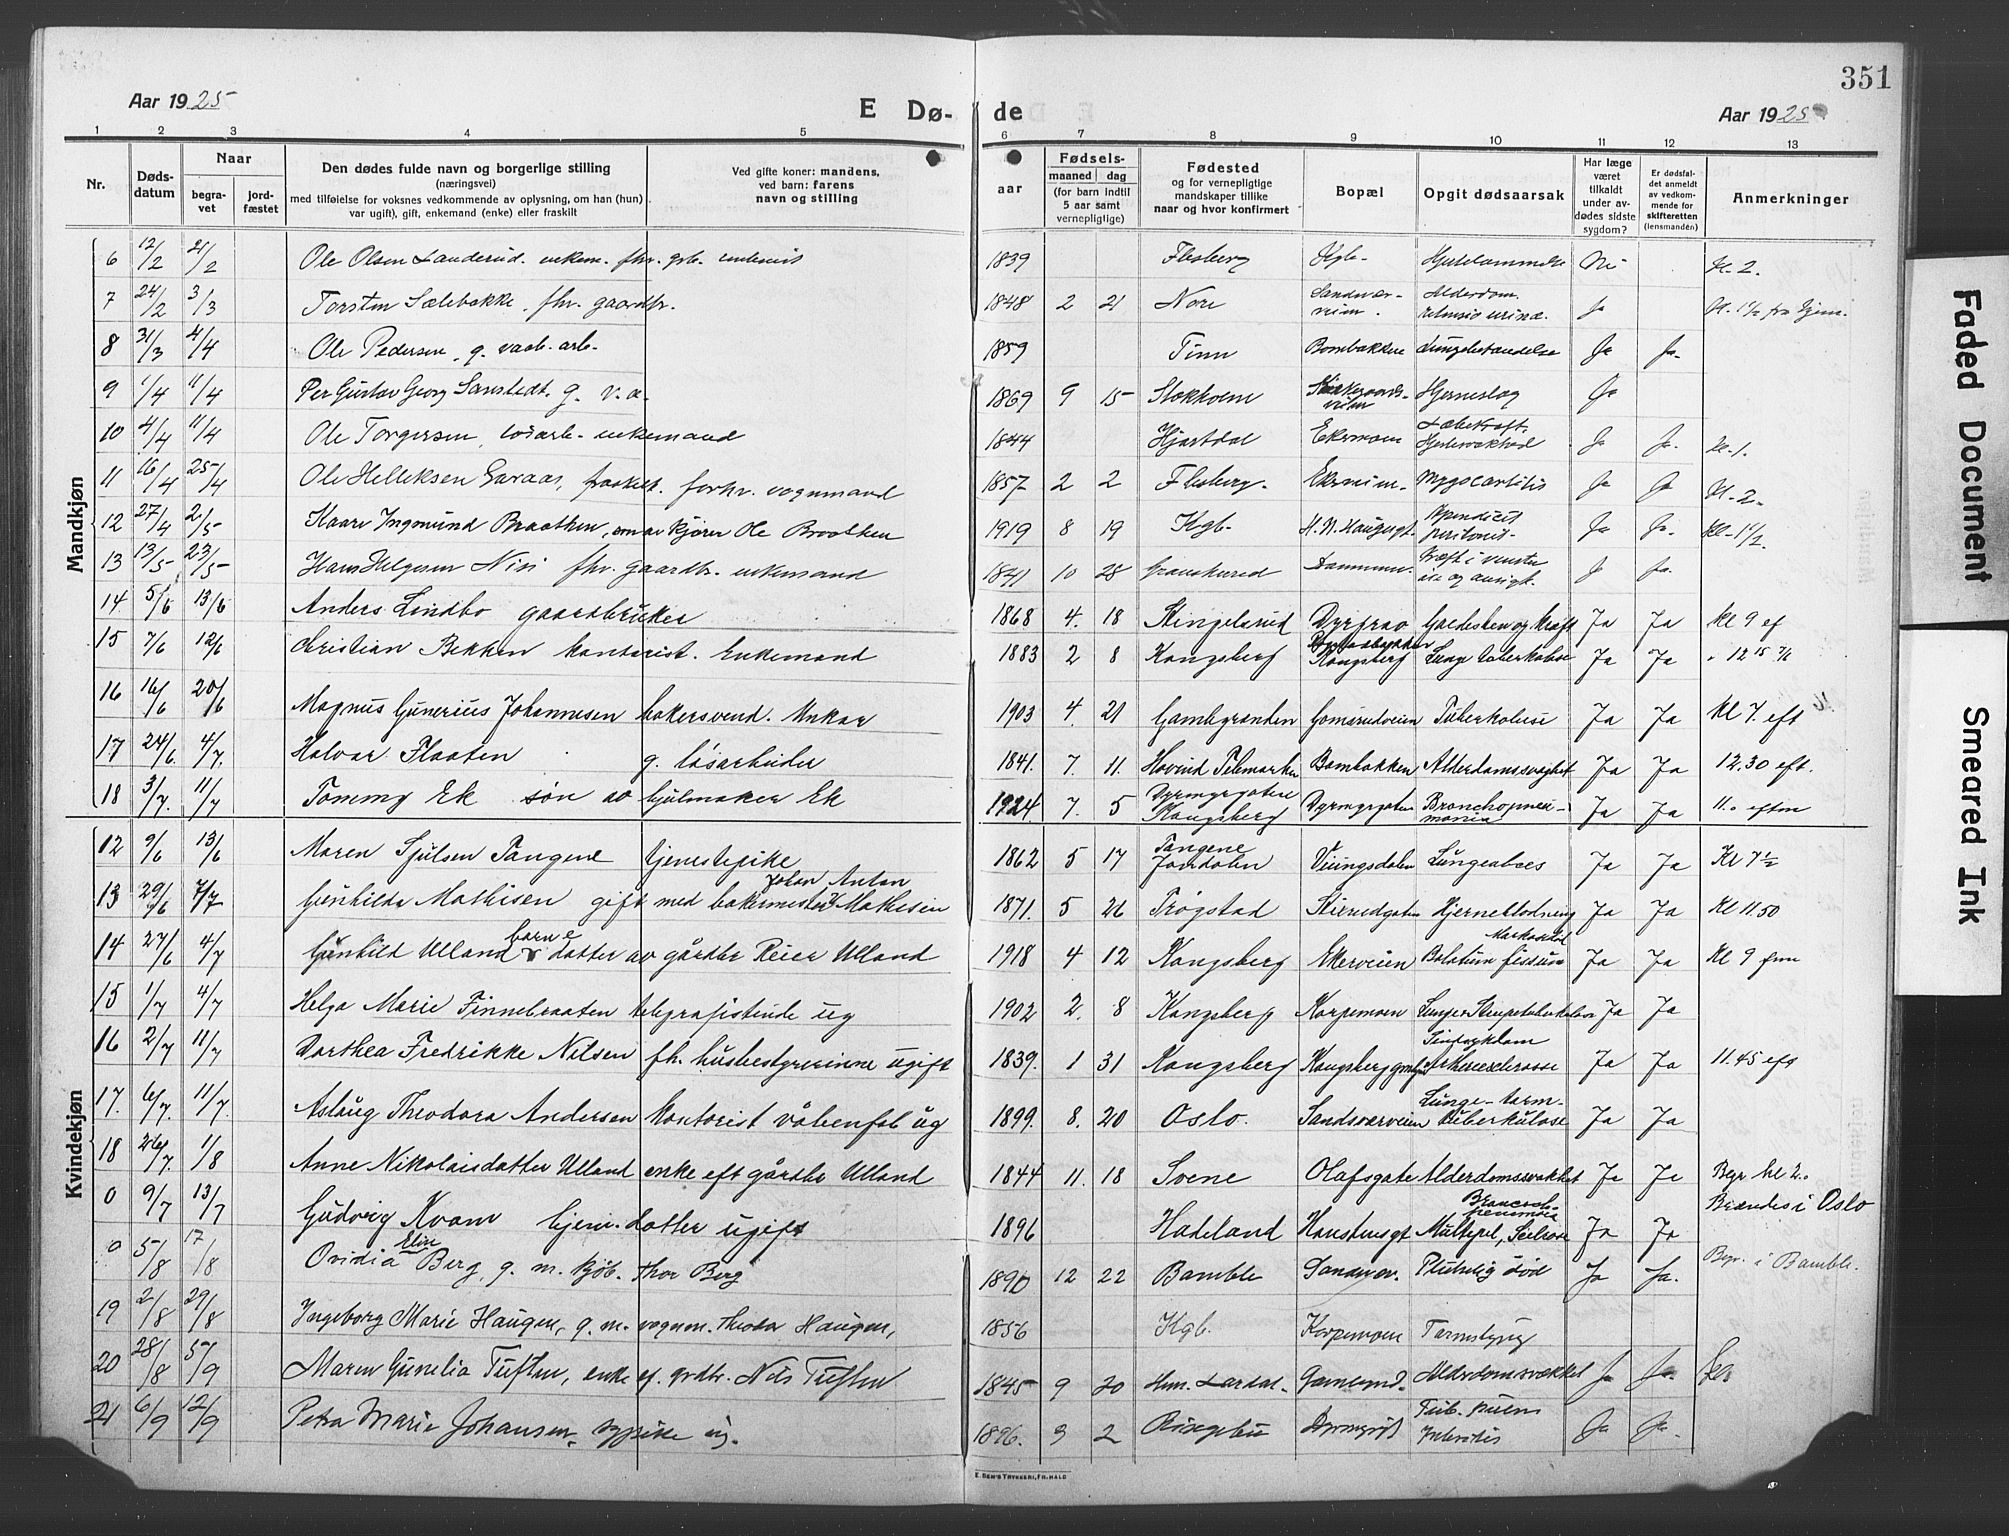 351
Aar 1925 E Dø- de Aar 1925
1 2 3 4 5 6 7 8 9 10 11 12 13
Nr.
Døds-
datum
Naar
begra-
vet
jord-
fæstet
Den dødes fulde navn og borgerlige stilling
(næringsvei)
med tilføielse for voksnes vedkommende av oplysning, om han (hun)
var ugift), gift, enkemand (enke) eller fraskilt
Ved gifte koner: mandens,
ved barn: farens
navn og stilling
aar
Fødsels-
maaned dag
(for barn indtil
5 aar samt
vernepligtige)
Fødested
og for vernepligtige
mandskaper tillike
naar og hvor konfirmert
Bopæl
Opgit dødsaarsak
Har læge
været
tilkaldt
under av-
dødes sidste
sygdom?
Er dødsfal-
det anmeldt
av vedkom-
mende for
skifteretten
(lensmanden)
Anmerkninger
Mandkjøn
6 12/2 21/2 Ole Olsen Landerud. enkem. fhv. 1839 Flesberg Kgb. Nei Kl. 2.
7 24/2 3/3 Torsten Sælebakke. fhv. gaardbr. 1848 2 21 Nore Alderdom. Ja
8 31/3 4/4 Ole Pedersen, g. vaab. arb. 1859 Tinn Bombakken Lungebetændelse Ja Ja.
9 1/4 11/4 Per Gustav Georg Sanstedt. g. v. a. 1869 9 15 Stokholm Kirkegaards-veien Hjerneslag Ja
10 4/4 11/4 Ole Torgersen, løsarb. enkemand 1844 Hjartdal Ekermoen Ja Ja. Kl. 1.
11 16/4 25/4 Ole Helleksen Garaas, fraskilt. forhv. vognmand 1857 2 2 Flesberg. Ekerveien. Myocartitis Ja Ja Kl. 2.
12 27/4 2/5 Kaare Ingmund Braathen, Ole Braathen 1919 8 19 Kgb. H. N. Haugesgt. peritonit. Ja Ja. Kl. 1 1/2.
13 13/5 23/5 Hans Helgesen fhv. gaardbr. enkemand 1841 10 28 Dammen. Kræft i venstre Ja Ja.
14 5/6 13/6 Anders Lindbo gaardbruker 1868 4. 18 Stengelsrud Galdesten og Kræft Ja Ja Kl 9 ef
15 7/6 12/6 Christian Bekken kontorist. Enkemand 1883 2 8 Kongsberg Kongsberg Lunge tuberkulose Ja Ja
16 16/6 20/6 Magnus Gunerius Johannesen bakersvend. Unkar 1903 4. 21 Gamlegrenden Gomsrudveien Tuberkulose Ja Ja Kl 7. eft
17 24/6. 4/7. Halvar Flaaten g. løsarbeider 1841. 7. 11. Hovind Telemarken Bambakken Alderdomssvaghet Ja Ja 12.30 eft.
18 3/7. 11/7 Tommy Ek søn av hjulmaker Ek 1924. 7. 5 Dyrmyrgaten Kongsberg Dyrmyrgaten Bronchopneu-monia Ja Ja 11.0 eftm
Kvindekjøn
12 9/6 13/6 Maren Sjulsen Tangene tjenestepike 1862 5 17 Tangene Jondalen Veungsdalen Ja Ja Kl 7 1/2
13 29/6 7/7 Gunhilda Mathisen gift med bakermester Johan Anton Mathisen 1871. 5 26 Trøgstad Hjerneblødning Ja Ja Kl 11.50
14 27/6 4/7 Gunhild Ulland datter av gårdbr Reier Ulland 1918 4 12 Kongsberg Ekerveien Ja Ja Kl 9
15 1/7 4/7 Helga Marie Finnebraaten telegrafistinde ug 1902 2. 8 Kongsberg Korpemoen Lunge Strupetuberkulose Ja Ja
16 2/7 11/7 Dorthea Fredrikke Nilsen fh. husbestyrerinne ugift 1839. 1 31 Kongsberg Ja Ja 11.45 eft
17. 6/7. 11/7. Aslaug Theodora Andersen kontorist våbenfab ug 1899. 8. 20 Oslo. Sandsværveien Lunge- tarm- tuberkulose Ja Ja
18 26/7. 1/8 Anne Nikolaisdatter Ulland enke eft gårdbr Ulland 1844 11. 18 Svene Olafsgate Alderdomssvækket Ja Ja Begr. kl 2.
0 9/7 13/7 Gudvig Kvam hjem. datter ugift 1896 Hadeland Ja Ja Brændes i Oslo
0 5/8 17/8 Ovidia Eline Berg, g. m. kjøb. Thor Berg 1890 12 22 Bamble Sandsv. Plutselig død Ja Ja. Begr. i Bamble.
19 2/8 29/8 Ingeborg Marie Haugen, g. m. vognm. Theodor Haugen, 1856 Kgb. Korpemoen
20 28/8 5/9 Maren Gunelia Tuften, enke ef. grdbr. Nils Tuften 1845 9 20 Alderdomsvækket Ja Ja.
21 6/9 12/9 Petra Marie Johansen, sypike ug. 1896. 3 2 Ja Ja.
E. SEM'S TRYKKERI, FR.HALD
Faded Document
Smeared Ink